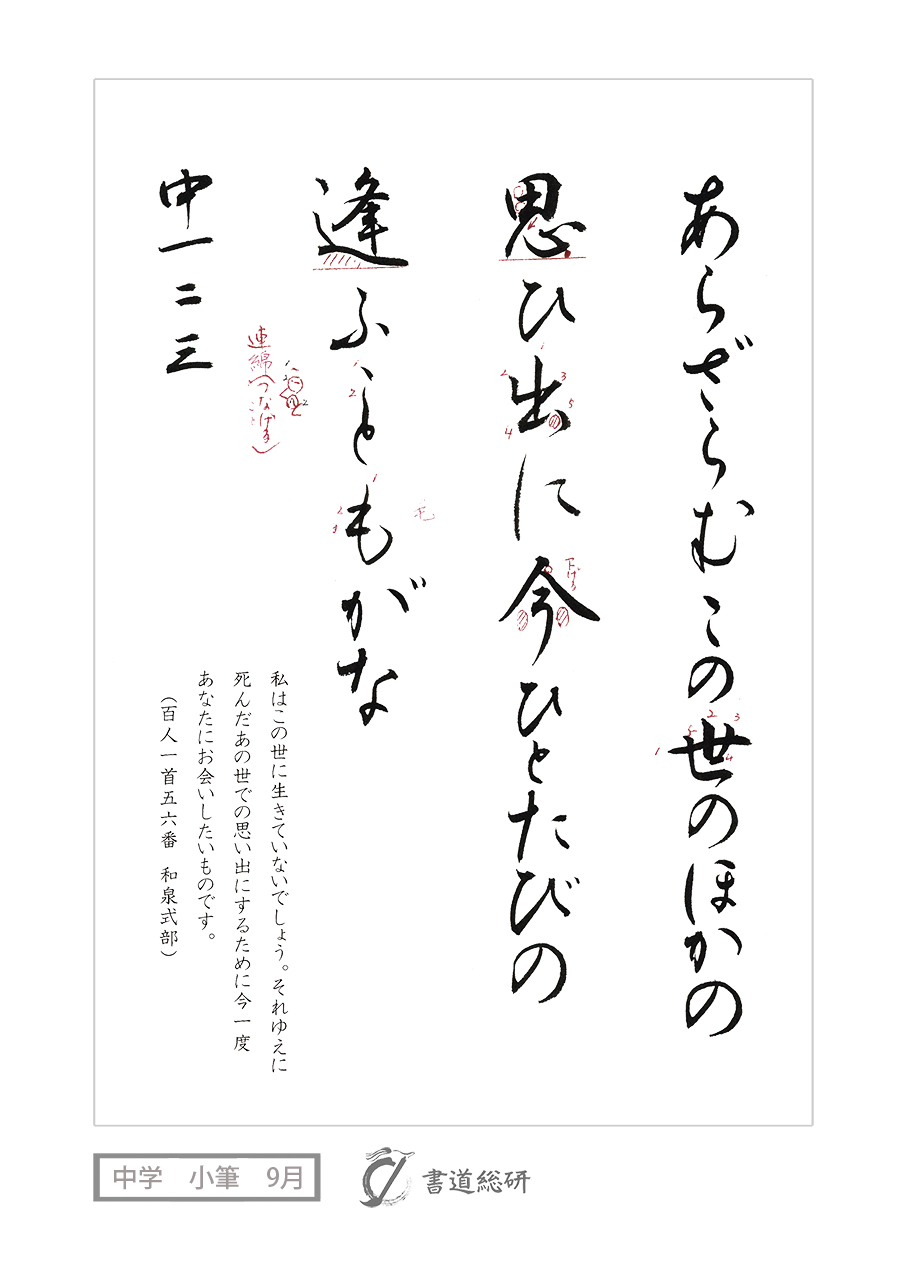 あらざらむこの世のほかの
思ひ出に今ひとたびの
逢ふこともがな
中一二三
下げる
毛
連綿(つなげること)
私はこの世に生きていないでしょう。それゆえに
死んだあの世での思い出にするために今一度
あなたにお会いしたいものです。
(百人一首五六番 和泉式部)
中学 小筆 9月
書道総研